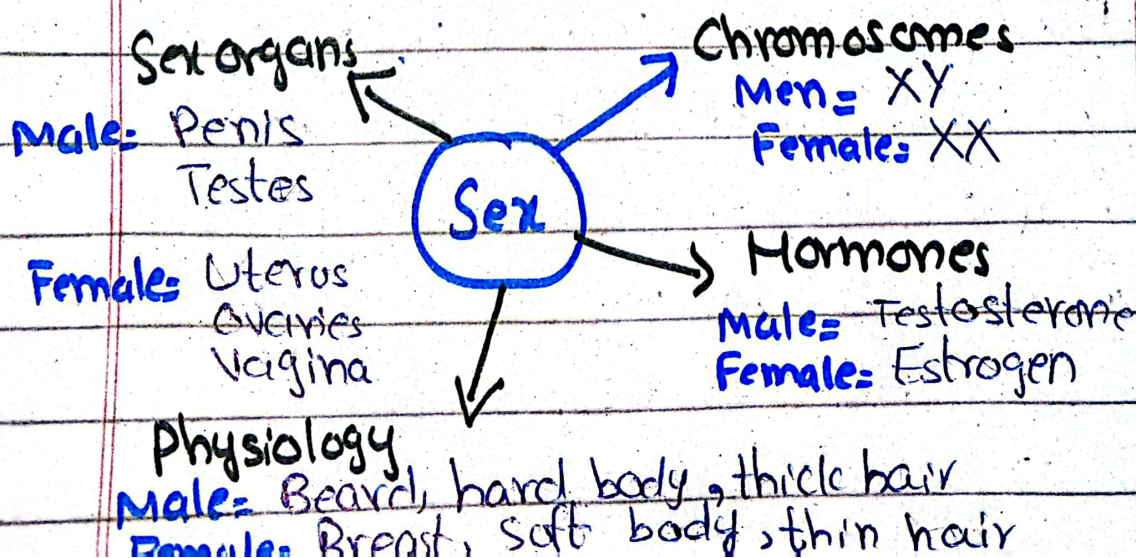 Sex organs
Male= Penis
Testes
Female= Uterus
Ovaries
Vagina
Sex
Chromosomes
Men= XY
Female= XX
Hormones
Male= Testosterone
Female= Estrogen
Physiology
Male= Beard, hard body, thick hair
Female= Breast, soft body, thin hair